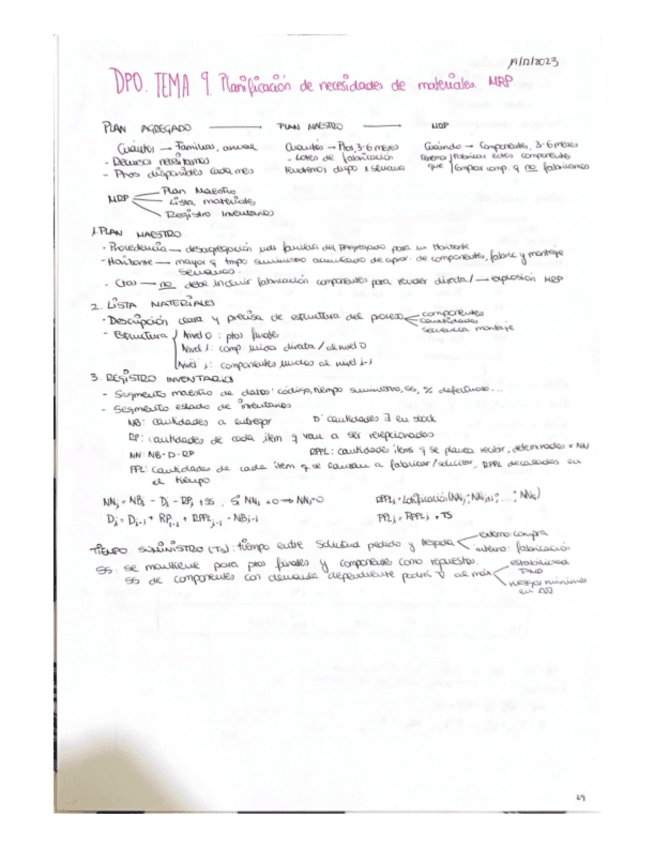 19/12/2023
DPO. TEMA 9. Planificación de necesidades de materiales. MRP
PLAN AGREGADO → PLAN MAESTRO → MRP
Cuántos → Familias, anual
- Recursos necesitamos
- Ptos disponibles cada mes
Cuántos → Ptos, 3-6 meses
- Lotes de fabricación
tendremos dispo x semana
Cuándo → Componentes, 3-6 meses
Tenemos que / Fabricar estos componentes
Comprar comp. q no fabricamos
MRP
Plan Maestro
Lista materiales
Registro Inventarios
1. PLAN MAESTRO
- Procedencia → desagregación familia del Pagregado para un Horizonte
- Horizonte → mayor q tmpo suministro acumulado de aprov. de componentes, fabric y montaje
semanas.
- Ctas → no debe incluir fabricación componentes para vender directa/ → explosión MRP
2. LISTA MATERIALES
- Descripción clara y precisa de estructura del
componentes
cantidades
secuencia montaje
- Estructura
Nivel 0: ptos finales
Nivel 1: comp. unido directa/ al nivel 0
Nivel i: componentes unidos al nivel i-1
3. REGISTRO INVENTARIO
- Segmento maestro de datos: código, tiempo suministro, SS, % defectuoso...
- Segmento estado de inventarios
NB: cantidades a entregar
D: cantidades ∃ en stock
RP: cantidades de cada item q van a ser recepcionados
NN: NB-D-RP
RPPL: cantidades items q se planea recibir, determinados x NN
PPL: cantidades de cada item q se lanzan a fabricar/solicitar, RPPL decalados en
el tiempo
NNj = NBj - Dj - RPj + SS. Si NNj < 0 → NNj = 0
RPPLj = Lotificación (NNj; NNj+1; ...; NNk)
Dj = Dj-1 + RPj-1 + RPPLj-1 - NBj-1
PPLj = RPPLj + TS
TIEMPO SUMINISTRO (TS): tiempo entre solicitud pedido y llegada
externo: compra
interno: fabricación
SS: se mantiene para ptos finales y componentes como repuestos.
SS de componentes con demanda dependiente podrá ↓ al máx
estabilidad
riesgos mínimos
49